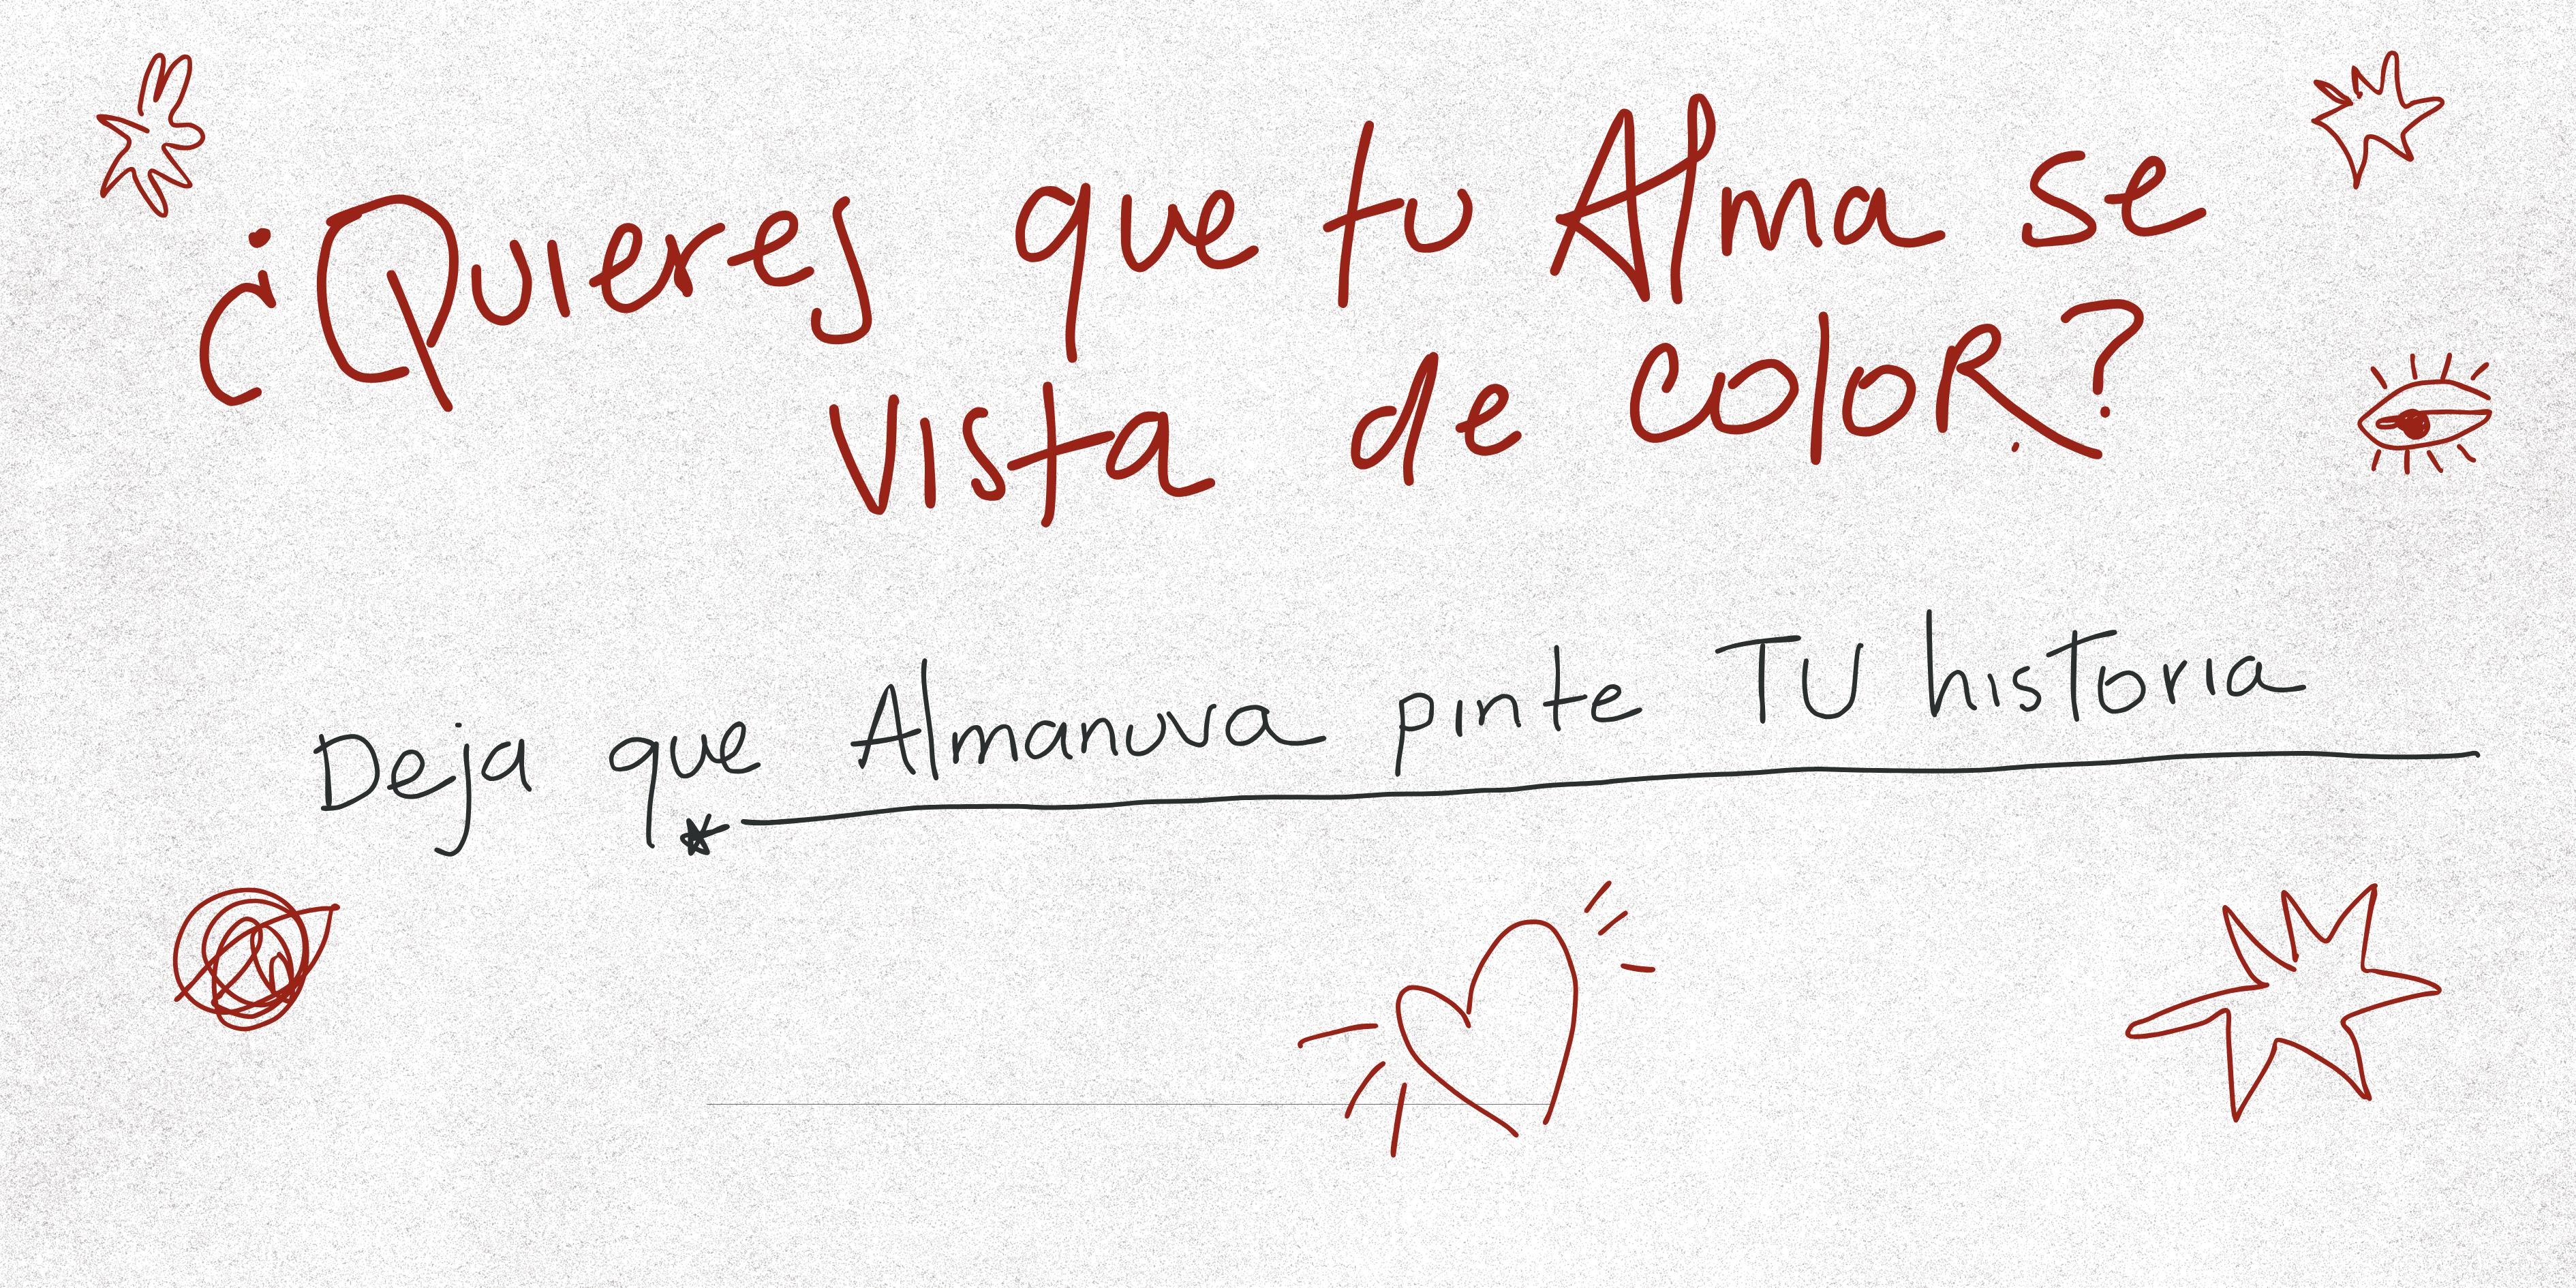 ¿Quieres que tu Alma se
vista de color?
Deja que Almanuva pinte TU historia